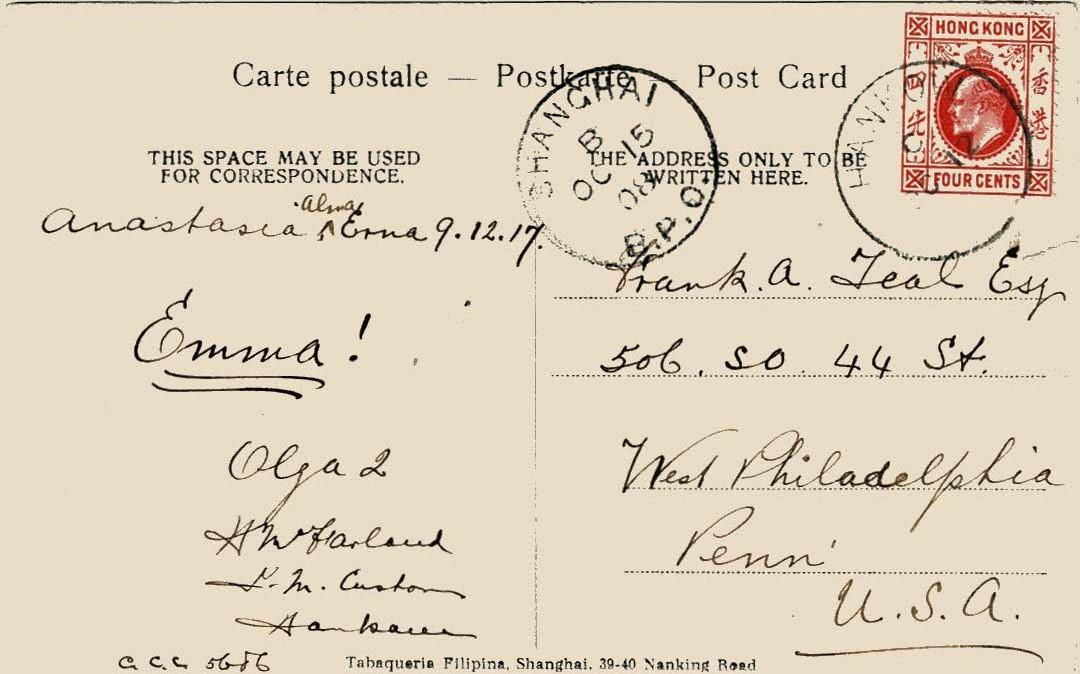 Carte postale — Postkarte — Post Card
HONG KONG
四先
香港
FOUR CENTS
SHANGHAI
B
OC 15
08
B.P.O.
HANKOW
THIS SPACE MAY BE USED
FOR CORRESPONDENCE.
THE ADDRESS ONLY TO BE
WRITTEN HERE.
Alma
Anastasia ^ Erna 9.12.17.
Emma!
Olga 2
H McFarland
I. M. Customs
Hankow
C. C. C. 5686
Frank. A. Teal Esq
506. SO. 44 St.
West Philadelphia
Penn
U.S.A.
Tabaqueria Filipina, Shanghai. 39-40 Nanking Road